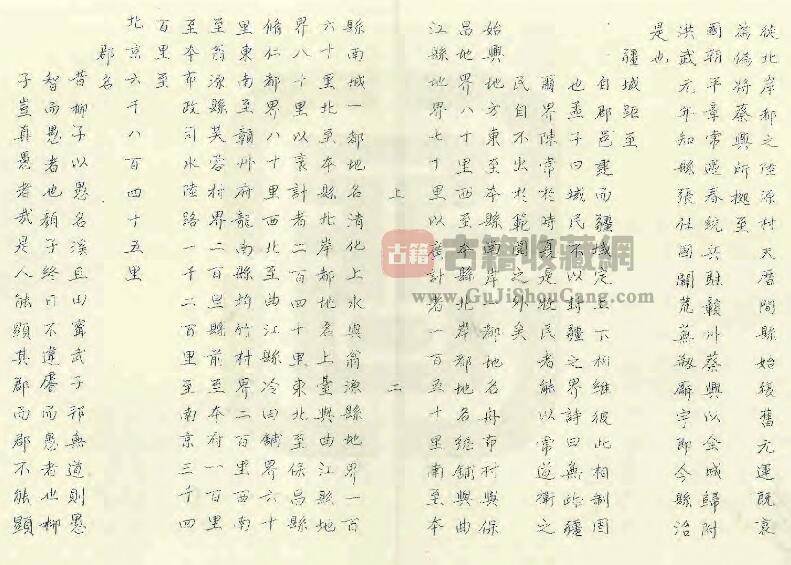 從北岸都之陸源村天曆間縣始復舊元運既衰
為偽將蔡興所據至
國朝平章常遇春統兵駐贛州蔡興以全城歸附
洪武元年知縣張仕國開荒蕪剏廨宇即今縣治
是也
疆域距至
自郡邑建而疆域定上下相維彼此相制固
也孟子曰域民不以封疆之界詩曰無此疆
爾界陳常於時夏是故牧民者能以常道衛之
民自不出於範圍之外矣
始興地方東至本縣南岸一都地名舟市村與保
昌地界八十里西至本縣北岸都地名總鋪與曲
江縣地界七十里以廣計者一百五十里南至本
上
二
縣南城一都地名清化上水與翁源縣地界一百
六十里北至本縣北岸都地名上臺與曲江縣地
界八十里以袤計者二百四十里東北至保昌縣
脩仁都界八十里西北至曲江縣冷田鋪界六十
里東南至贛州府龍南縣均竹村界二百里西南
至翁源縣芙蓉村界二百里縣前至本府一百里
至本布政司水陸路一千二百里至南京三千四
百里至
北京六千八百四十五里
郡名
昔柳子以愚名溪且曰甯武子邦無道則愚
智而愚者也顏子終日不違愚而愚者也柳
子豈真愚者哉是人能顯其郡而郡不能顯
古籍
古籍收藏網
www.GuJiShouCang.com